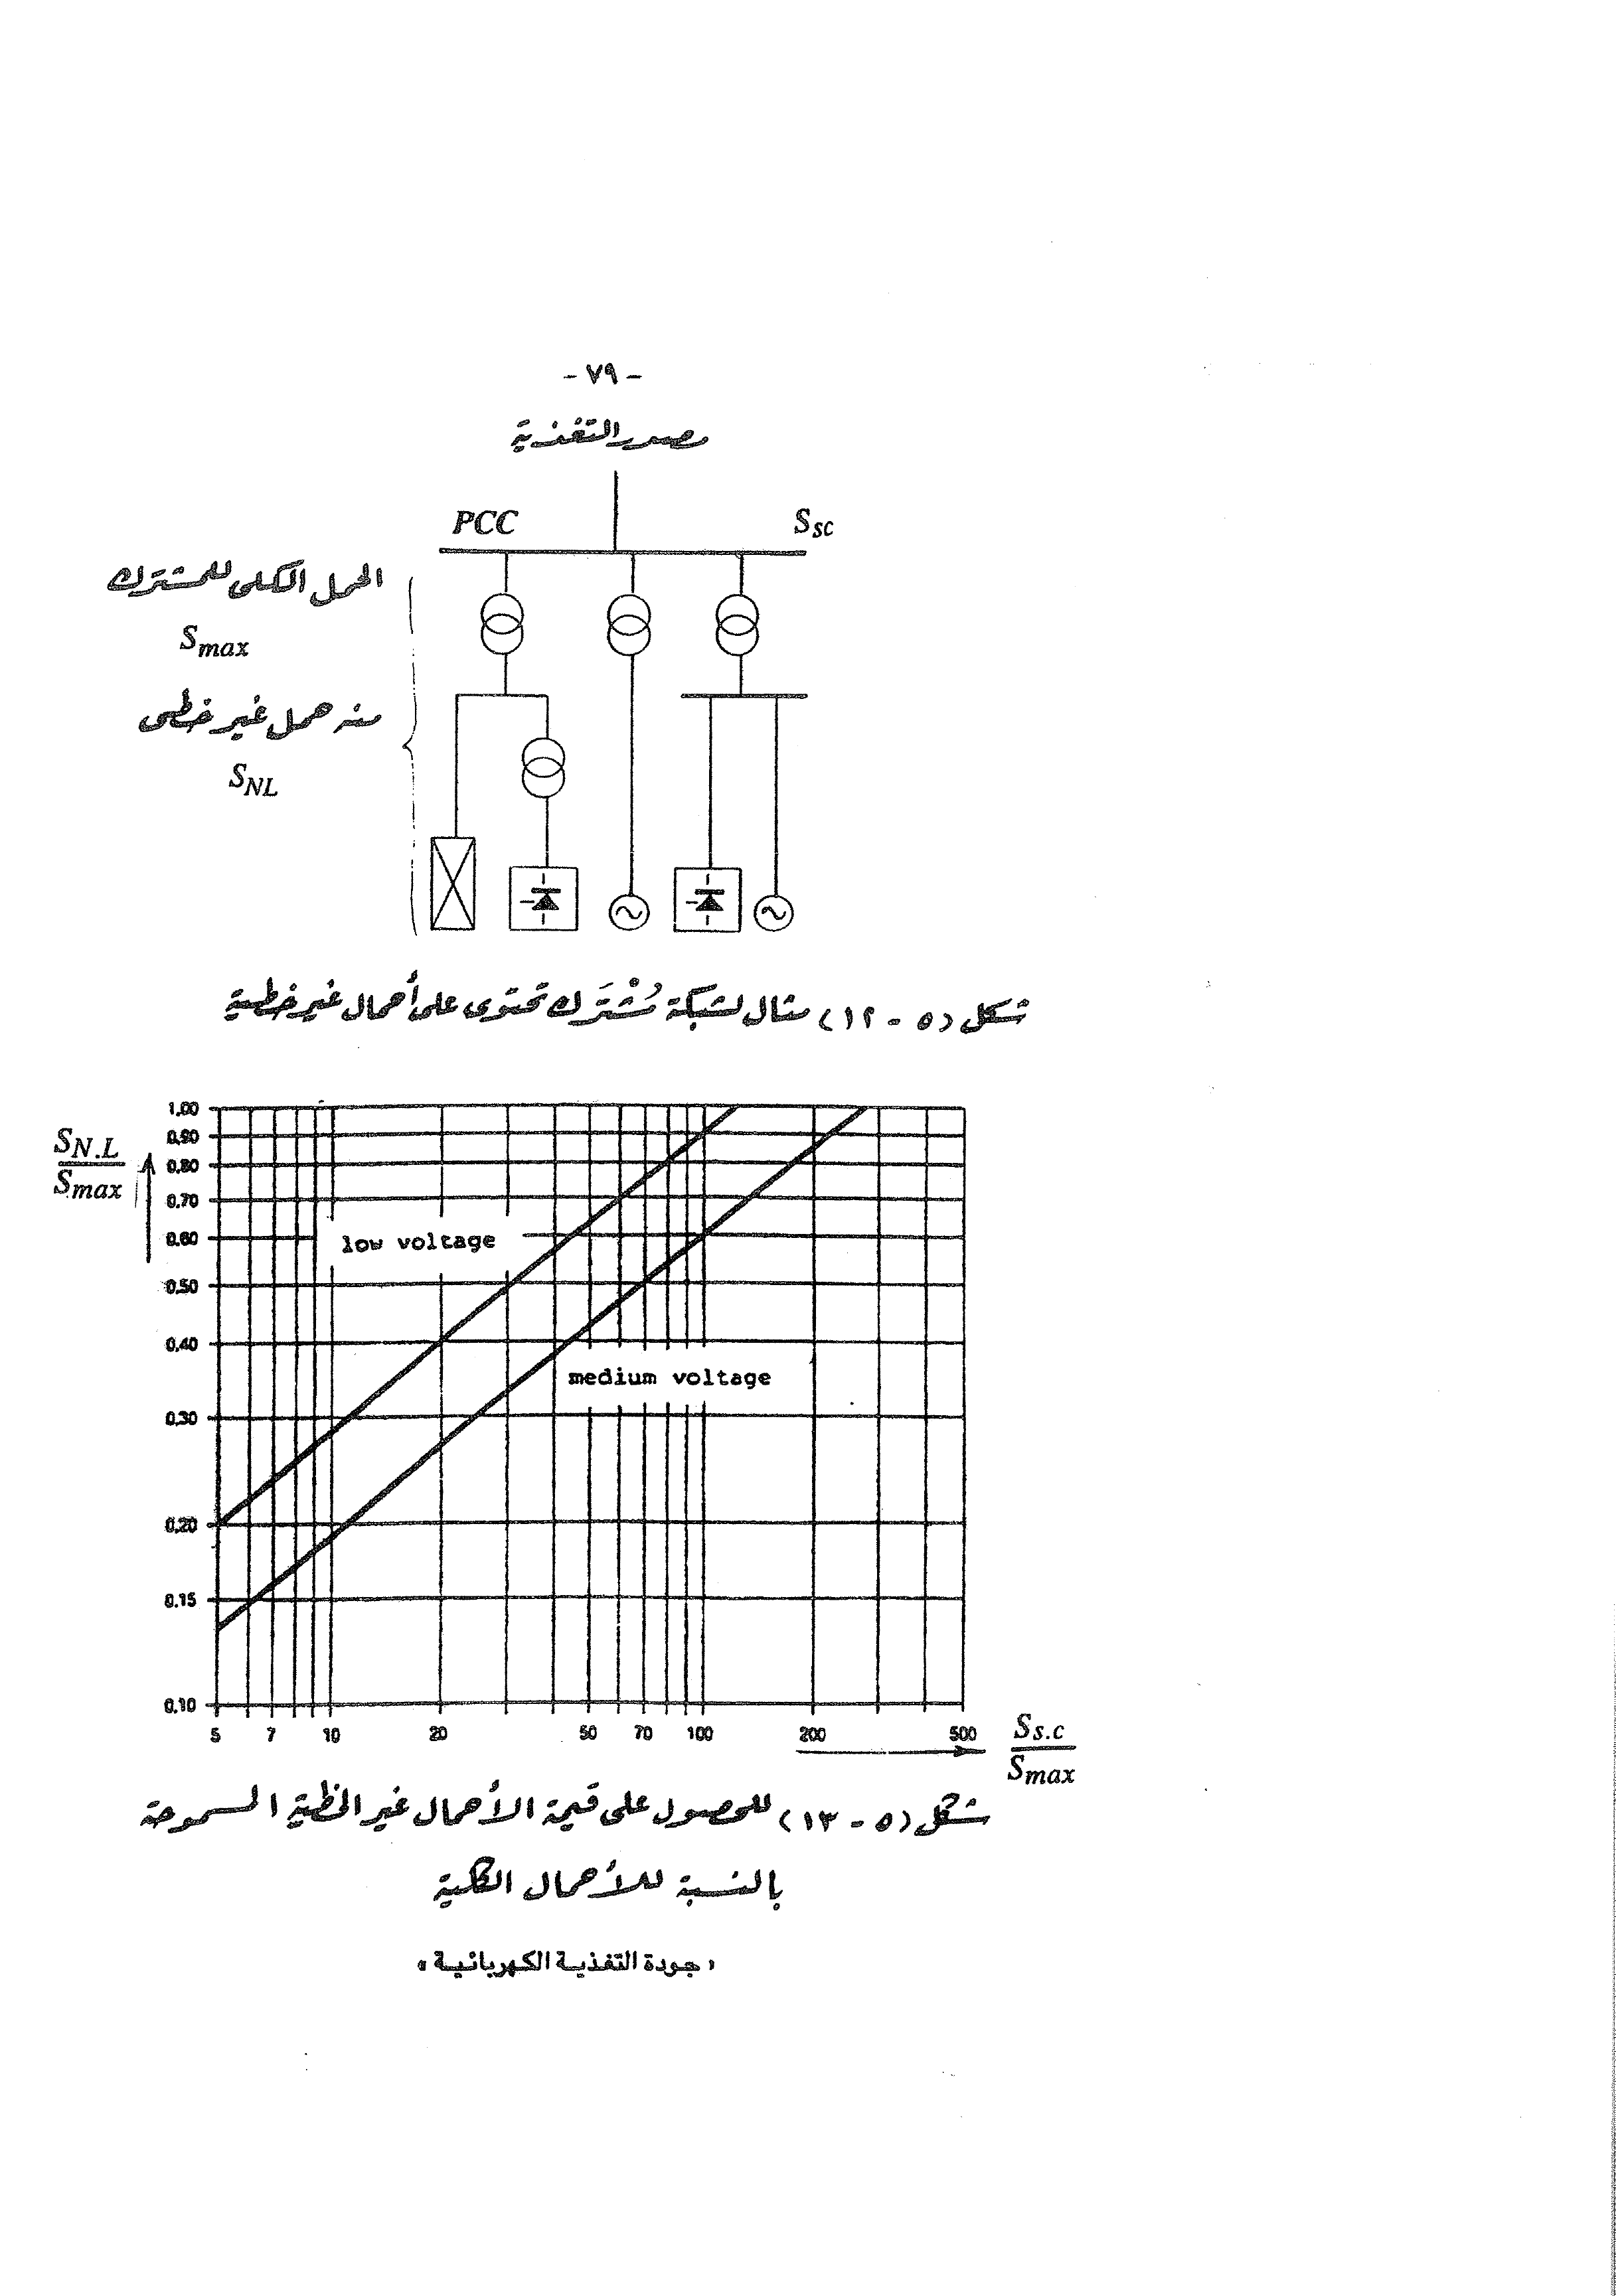 - ٧٩ -
مصدر التغذية
PCC
S_SC
الحمل الكلى للمشترك
S_max
منه حمل غير خطى
S_NL
شكل (٥ - ١٢) مثال لشبكة مُشْتَرَك تحتوى على أحمال غير خطية
S_N.L / S_max
1.00
0.90
0.80
0.70
0.60
0.50
0.40
0.30
0.20
0.15
0.10
low voltage
medium voltage
5 7 10 20 50 70 100 200 500
S_S.C / S_max
شكل (٥ - ١٣) للحصول على قيمة الأحمال غير الخطية المسموحة
بالنسبة للأحمال الكلية
«جودة التغذية الكهربائية»